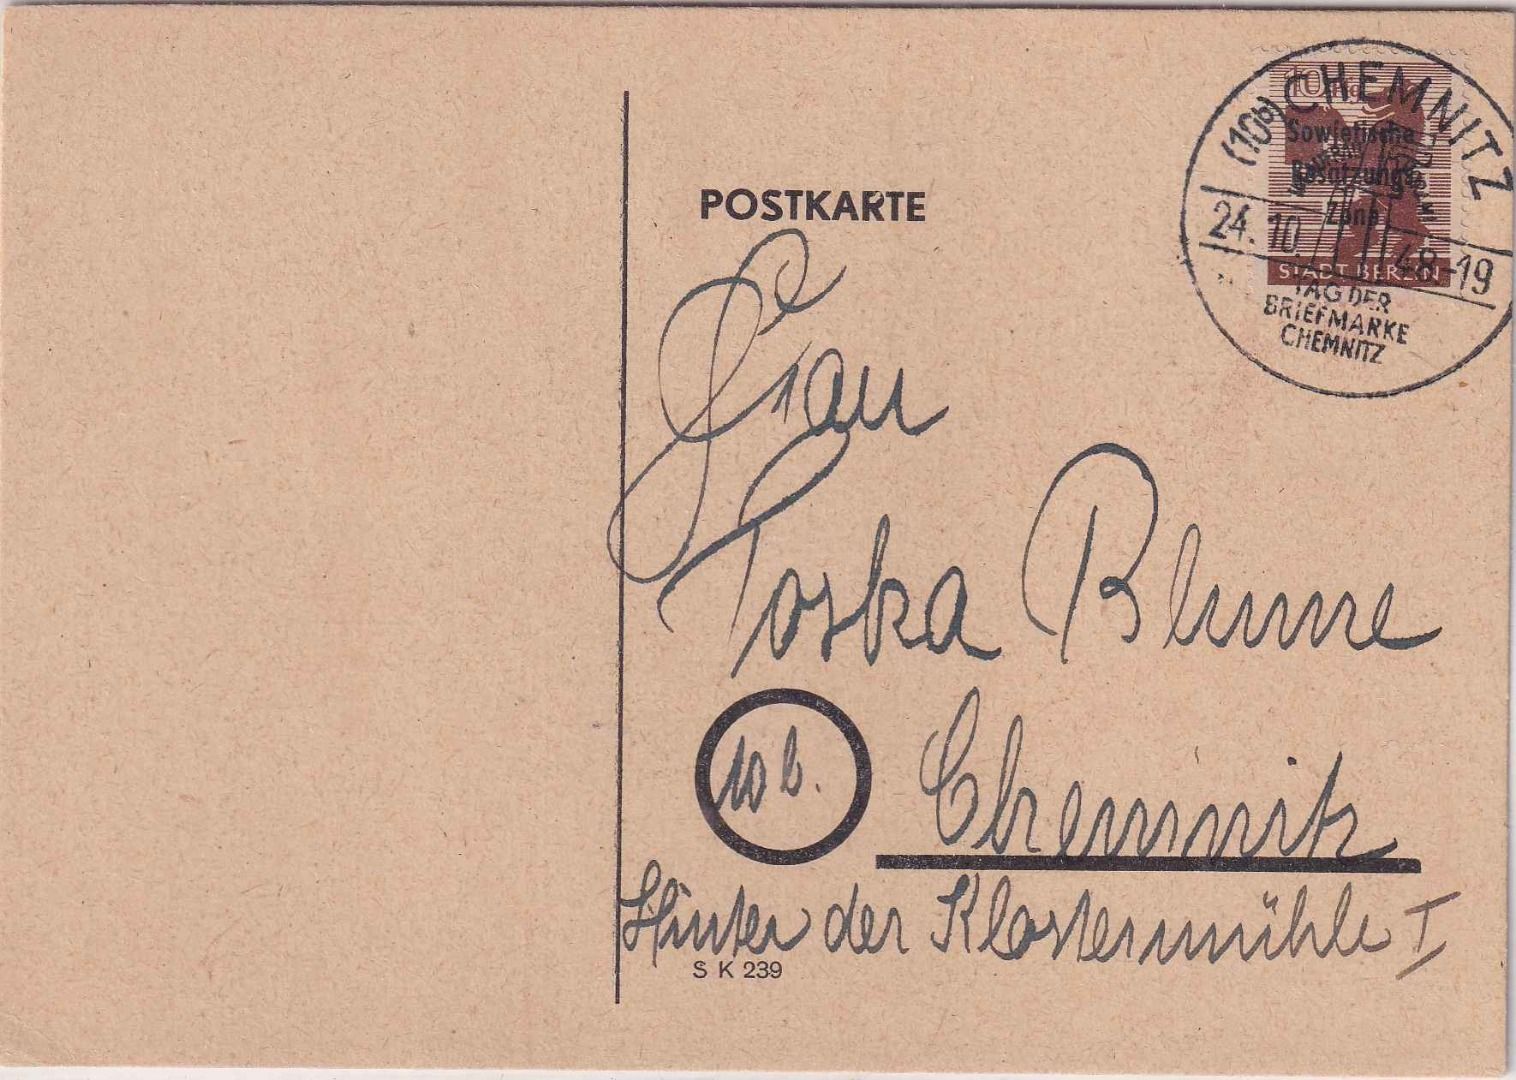 POSTKARTE
10 Pfg
Sowjetische
Besatzungs
Zone
STADT BERLIN
(10b) CHEMNITZ
24.10.48-19
TAG DER
BRIEFMARKE
CHEMNITZ
Frau
Toska Blume
10 b.
Chemnitz
Hinter der Klostermühle I
S K 239